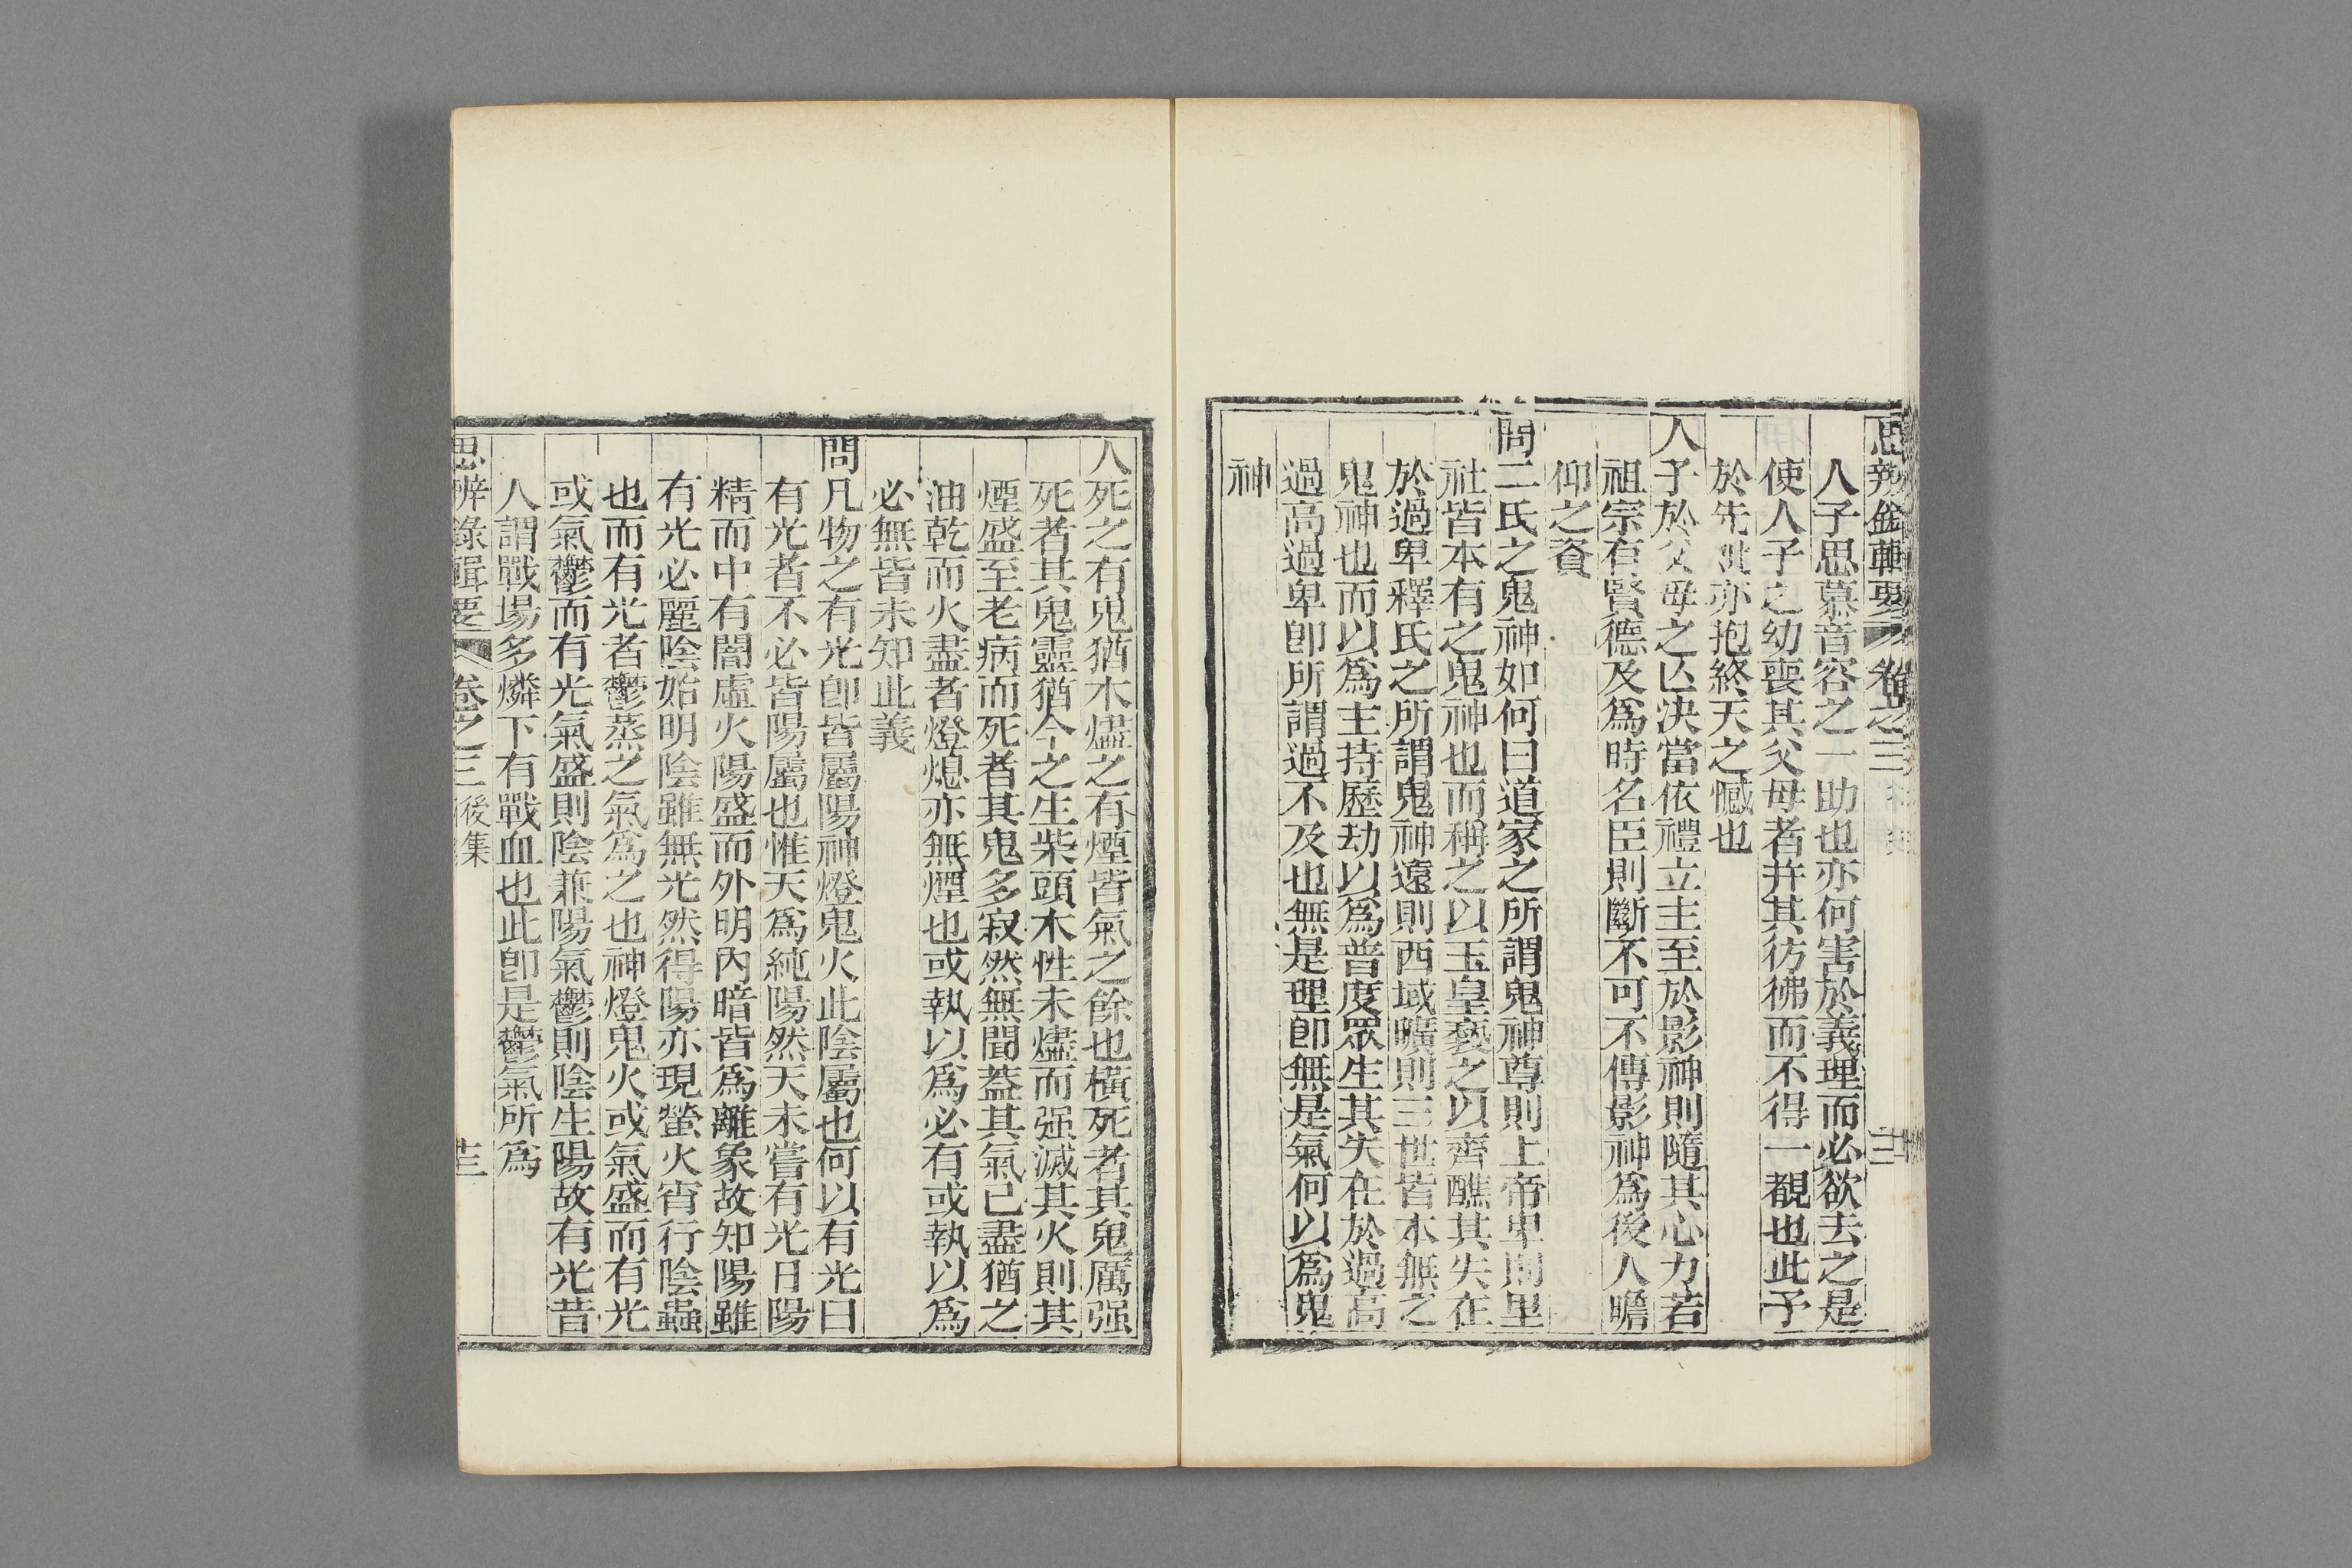 思辨錄輯要 卷之三
人子思慕音容之一助也亦何害於義理而必欲去之是
使人子之幼喪其父母者并其彷彿而不得一覩也此予
於先妣亦抱終天之憾也
人子於父母之亾决當依禮立主至於影神則隨其心力若
祖宗有賢德及爲時名臣則斷不可不傳影神爲後人瞻
仰之資
問二氏之鬼神如何曰道家之所謂鬼神尊則上帝卑則里
社皆本有之鬼神也而稱之以玉皇䙝之以齊醮其失在
於過卑釋氏之所謂鬼神遠則西域曠則三世皆本無之
鬼神也而以爲主持歷劫以爲普度眾生其失在於過高
過高過卑卽所謂過不及也無是理卽無是氣何以爲鬼
神
人死之有鬼猶木燼之有煙皆氣之餘也橫死者其鬼厲强
死者其鬼靈猶今之生柴頭木性未燼而强滅其火則其
煙盛至老病而死者其鬼多寂然無聞葢其氣已盡猶之
油乾而火盡者燈熄亦無煙也或執以爲必有或執以爲
必無皆未知此義
問凡物之有光卽皆屬陽神燈鬼火此陰屬也何以有光曰
有光者不必皆陽屬也惟天爲純陽然天未嘗有光日陽
精而中有闇虛火陽盛而外明內暗皆爲離象故知陽雖
有光必麗陰始明陰雖無光然得陽亦現螢火宵行陰蟲
也而有光者鬱蒸之氣爲之也神燈鬼火或氣盛而有光
或氣鬱而有光氣盛則陰兼陽氣鬱則陰生陽故有光昔
人謂戰場多燐下有戰血也此卽是鬱氣所爲
思辨錄輯要 卷之三 後集